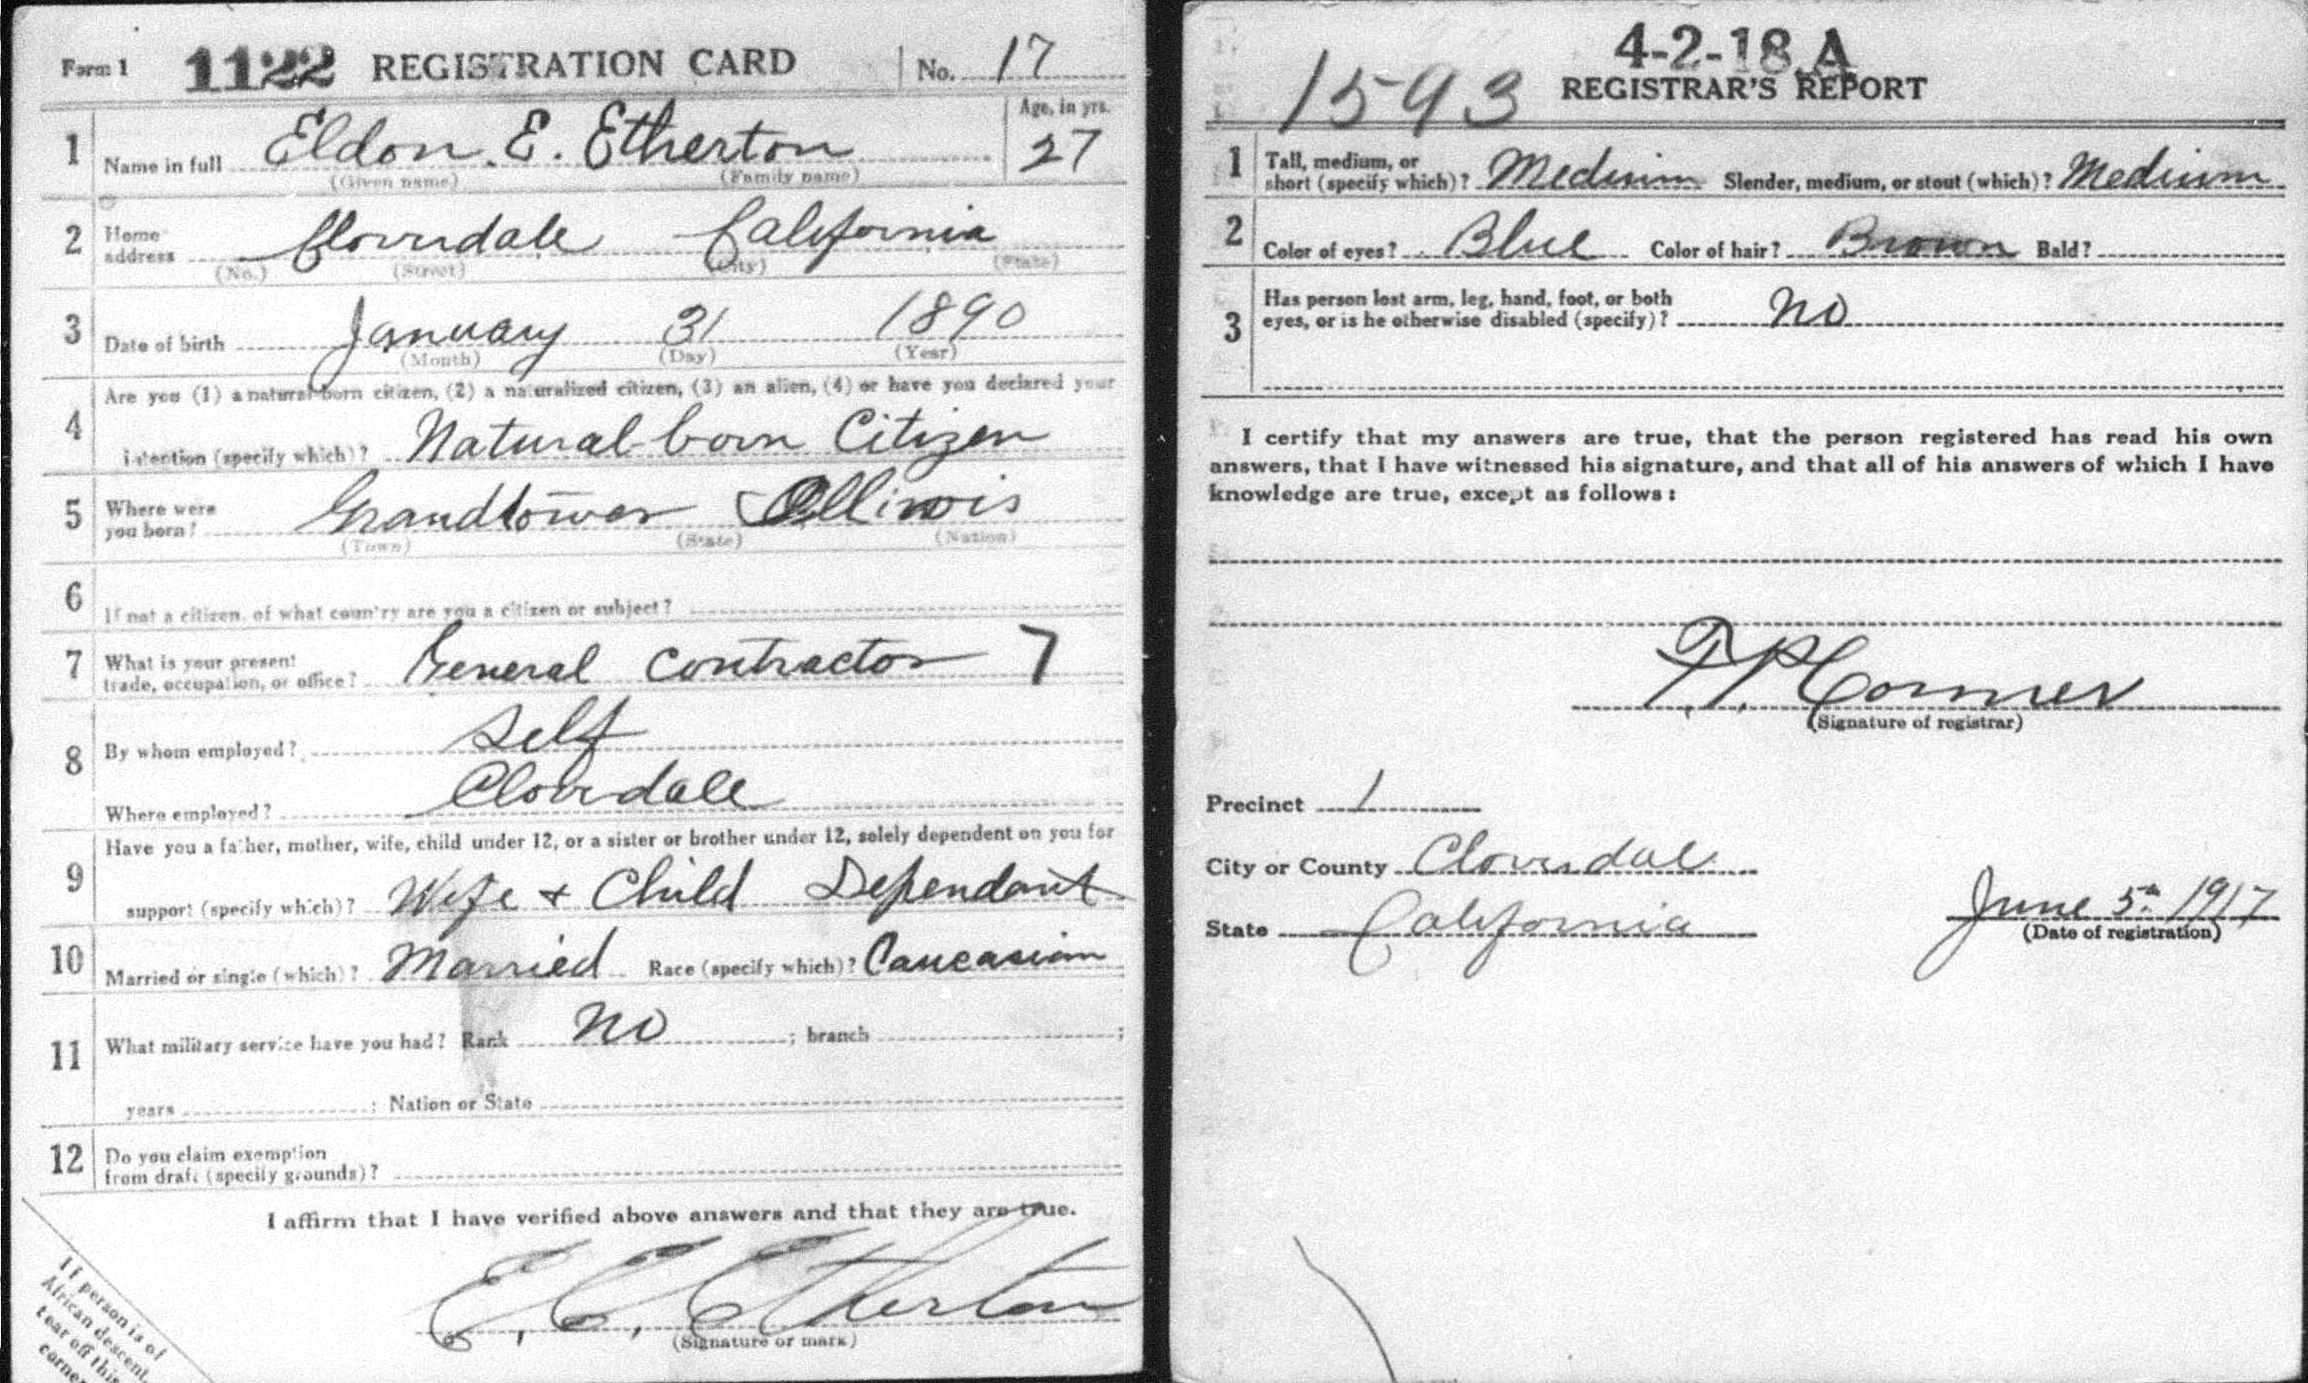 Form 1 1122 REGISTRATION CARD No. 17
1 Name in full Eldon. E. Etherton Age, in yrs. 27
(Given name) (Family name)
2 Home address Cloverdale California
(No.) (Street) (City) (State)
3 Date of birth January 31 1890
(Month) (Day) (Year)
4 Are you (1) a natural-born citizen, (2) a naturalized citizen, (3) an alien, (4) or have you declared your
intention (specify which)? Natural-born Citizen
5 Where were you born? Grandtower Illinois
(Town) (State) (Nation)
6 If not a citizen, of what country are you a citizen or subject?
7 What is your present trade, occupation, or office? General Contractor 7
8 By whom employed? Self
Where employed? Cloverdale
9 Have you a father, mother, wife, child under 12, or a sister or brother under 12, solely dependent on you for
support (specify which)? Wife + Child Dependant
10 Married or single (which)? Married Race (specify which)? Caucasian
11 What military service have you had? Rank No ; branch ;
years ; Nation or State
12 Do you claim exemption
from draft (specify grounds)?
I affirm that I have verified above answers and that they are true.
E. E. Etherton
(Signature or mark)
If person is of
African descent,
tear off this
corner
4-2-18.A
1593 REGISTRAR'S REPORT
1 Tall, medium, or
short (specify which)? Medium Slender, medium, or stout (which)? Medium
2 Color of eyes? Blue Color of hair? Brown Bald?
3 Has person lost arm, leg, hand, foot, or both
eyes, or is he otherwise disabled (specify)? No
I certify that my answers are true, that the person registered has read his own
answers, that I have witnessed his signature, and that all of his answers of which I have
knowledge are true, except as follows:
(Signature of registrar)
Precinct 1
City or County Cloverdale
State California
June 5th 1917
(Date of registration)